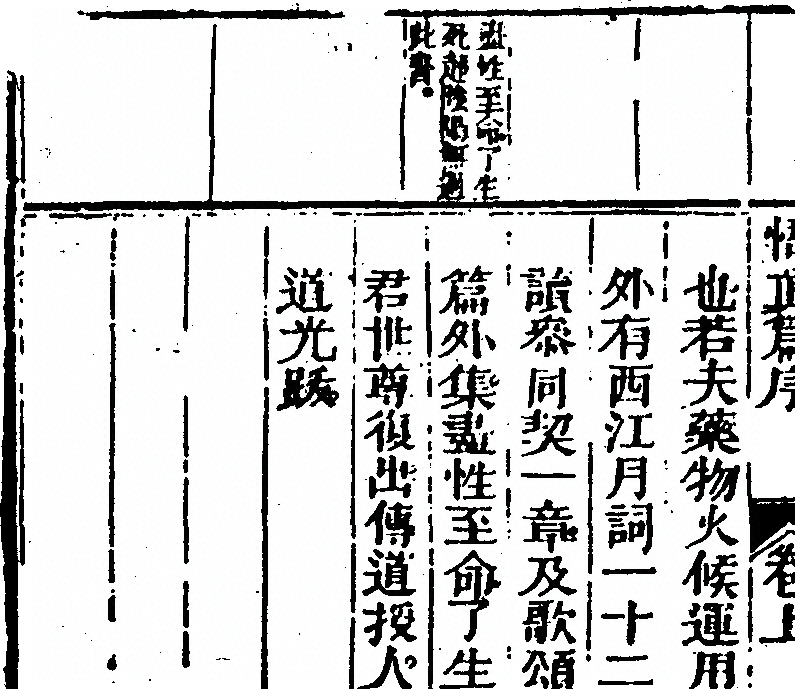 盡性至命了生
死超陰陽無過
此書。
悟真篇序
卷上
也若夫藥物火候運用
外有西江月詞一十二
讀參同契一章及歌頌
篇外集盡性至命了生
君世尊復出傳道授人
道光跋